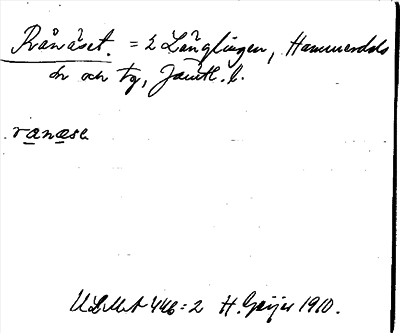 Rånåset. = 2 Långlingen, Hammerdals
sn och tg, Jämtl. l.
ranasɛ
ULMA 446:2 H. Geijer 1910.